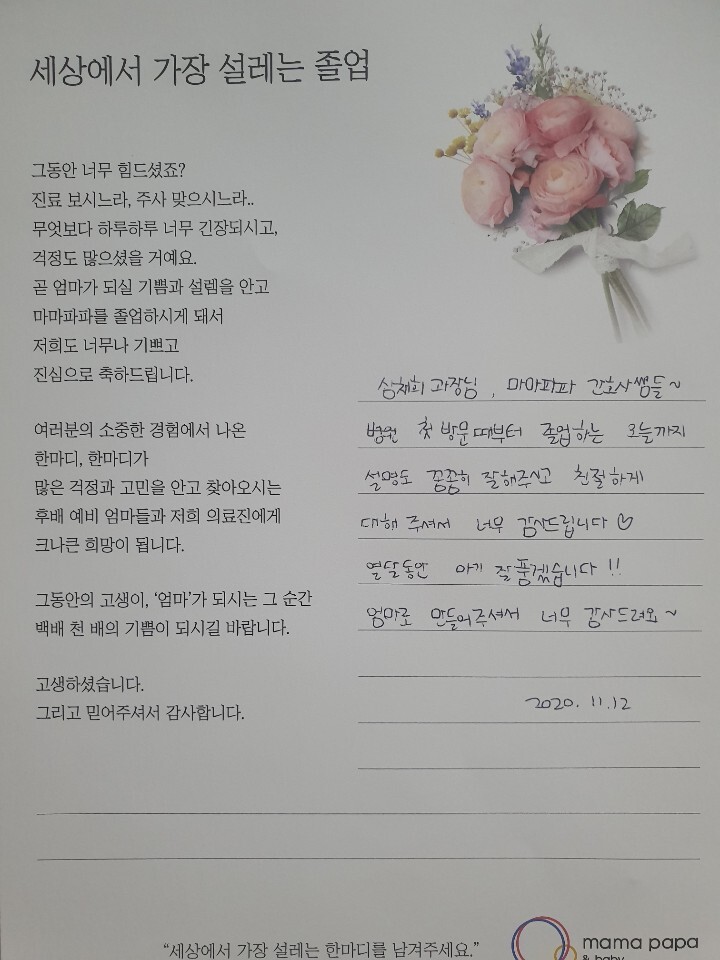 세상에서 가장 설레는 졸업
그동안 너무 힘드셨죠?
진료 보시느라, 주사 맞으시느라..
무엇보다 하루하루 너무 긴장되시고,
걱정도 많으셨을 거예요.
곧 엄마가 되실 기쁨과 설렘을 안고
마마파파를 졸업하시게 돼서
저희도 너무나 기쁘고
진심으로 축하드립니다.
여러분의 소중한 경험에서 나온
한마디, 한마디가
많은 걱정과 고민을 안고 찾아오시는
후배 예비 엄마들과 저희 의료진에게
크나큰 희망이 됩니다.
그동안의 고생이, ‘엄마’가 되시는 그 순간
백배 천 배의 기쁨이 되시길 바랍니다.
고생하셨습니다.
그리고 믿어주셔서 감사합니다.
삼채희 과장님, 마마파파 간호사쌤들~
병원 첫 방문때부터 졸업하는 오늘까지
설명도 꼼꼼히 잘해주시고 친절하게
대해 주셔서 너무 감사드립니다♡
열달동안 아기 잘 품겠습니다!!
엄마로 만들어주셔서 너무 감사드려요~
2020. 11. 12
“세상에서 가장 설레는 한마디를 남겨주세요.”
mama papa
& baby